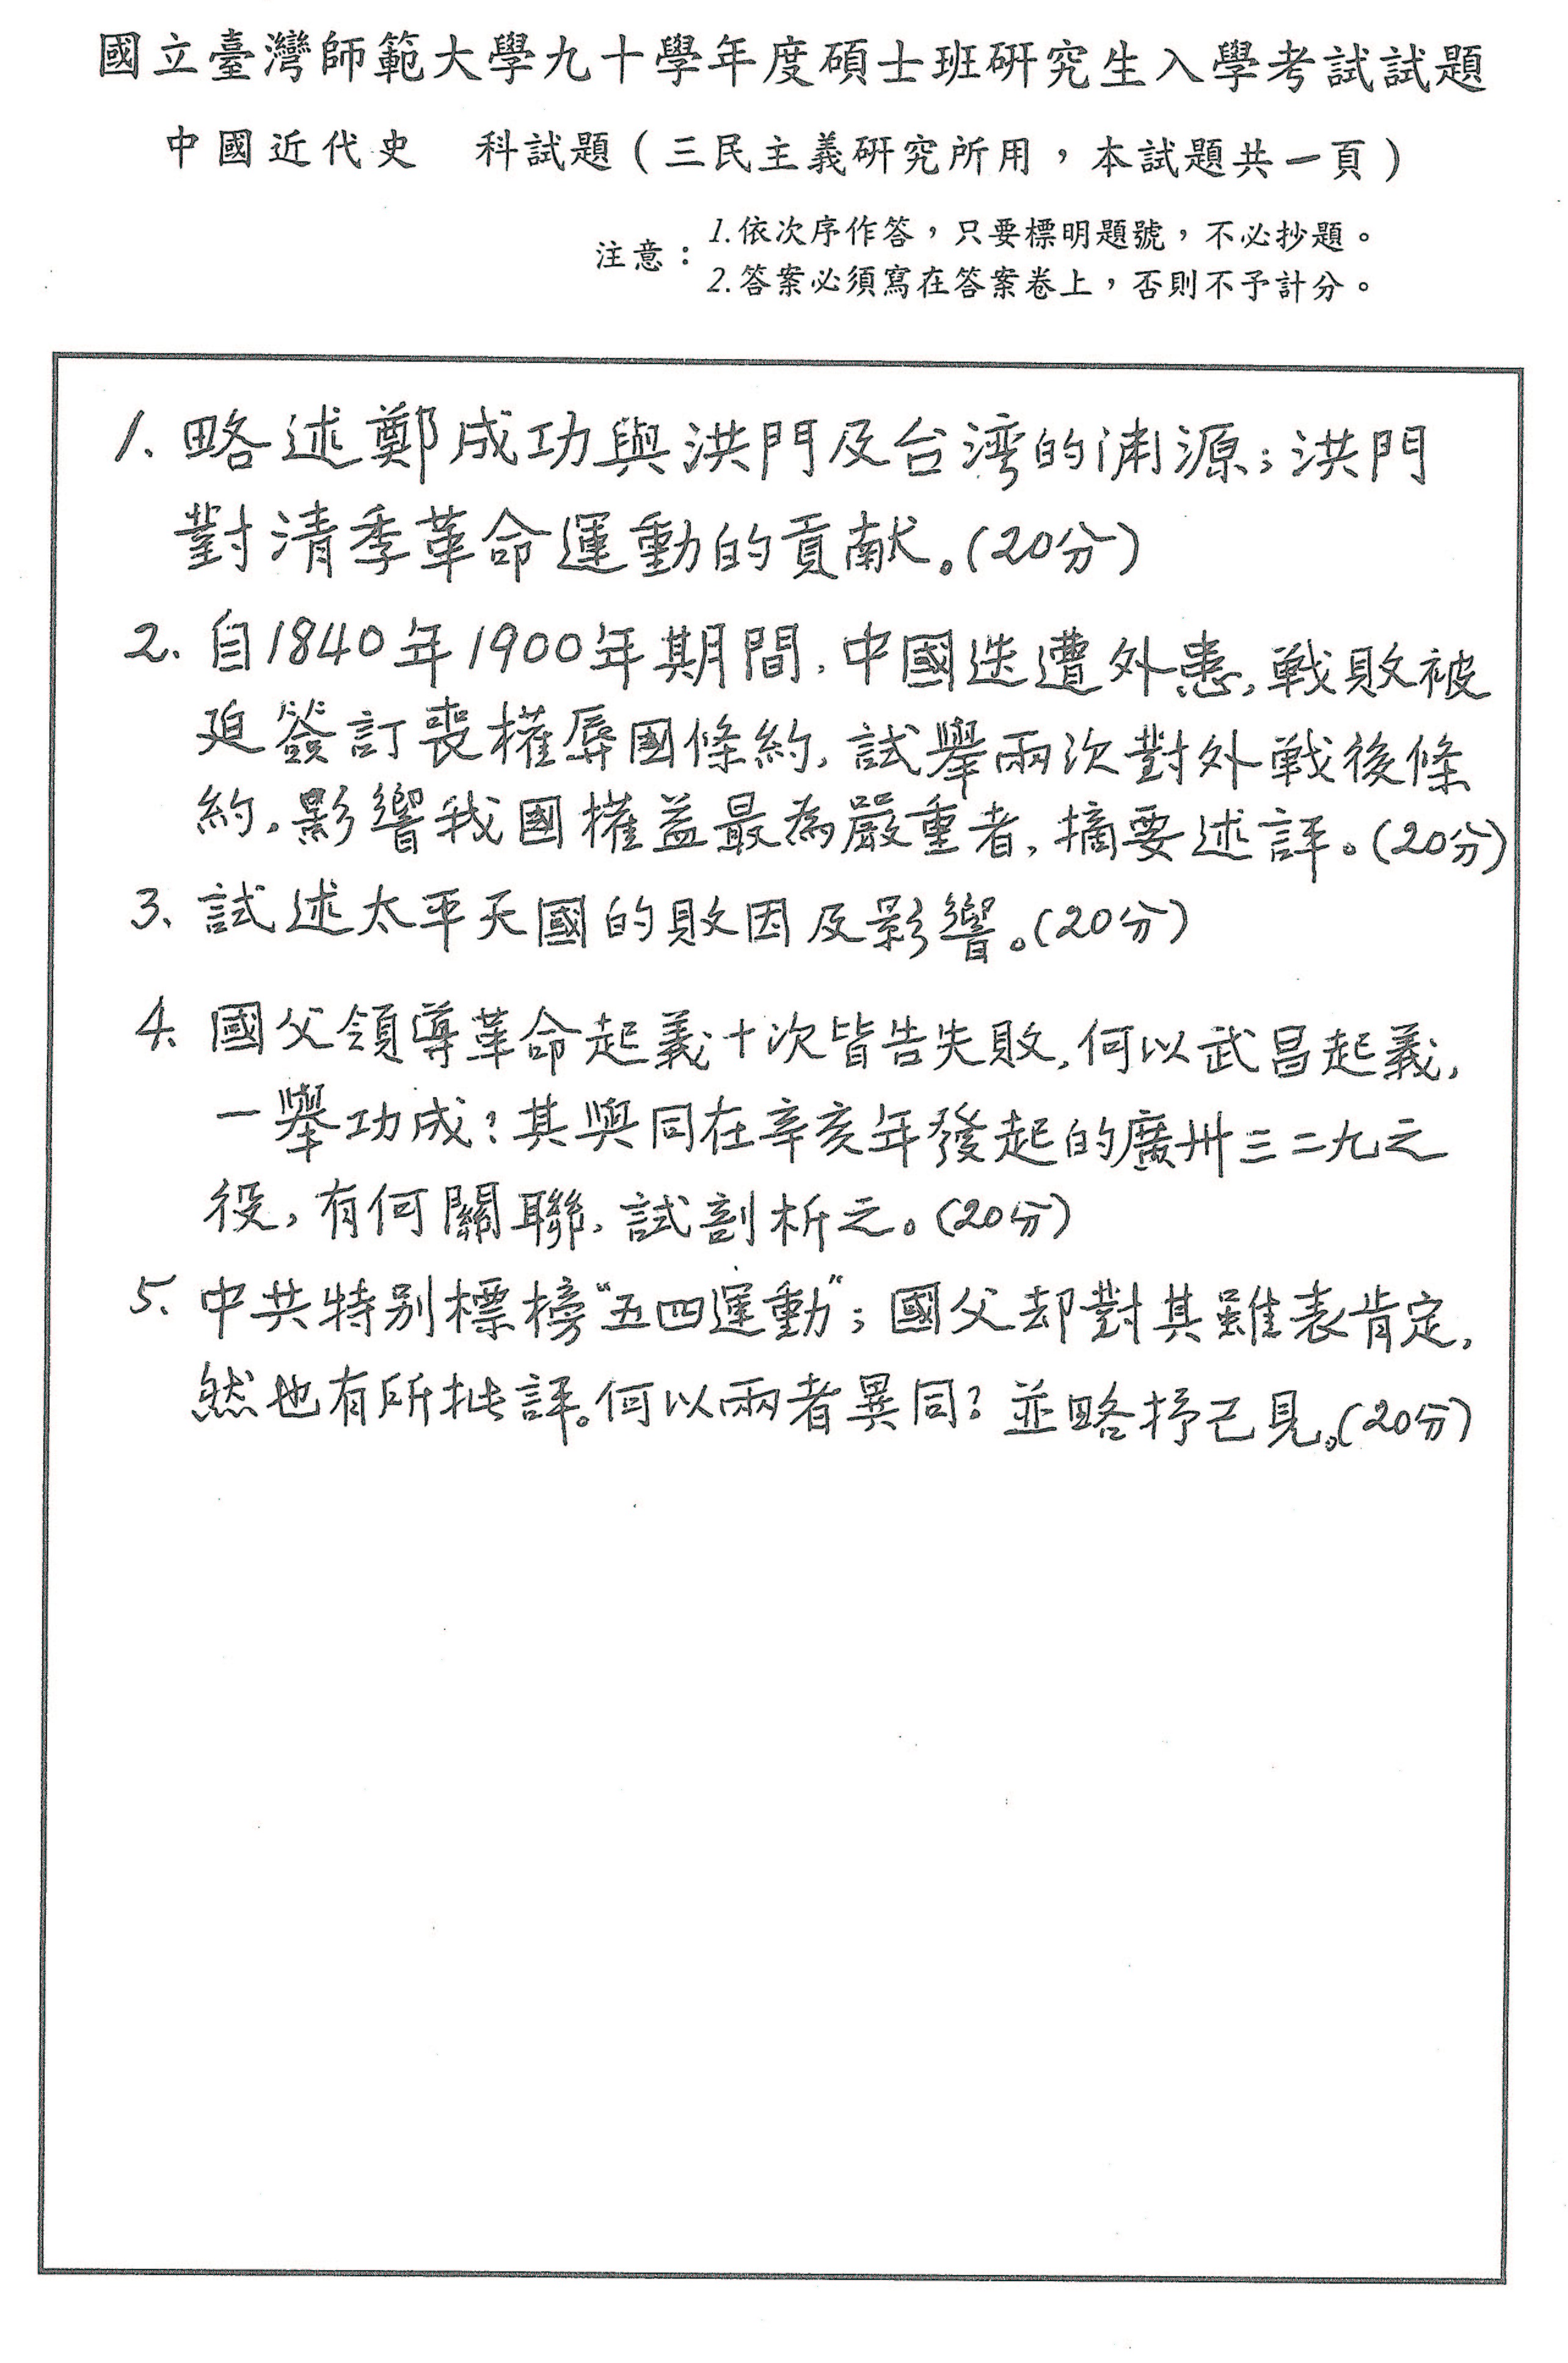 國立臺灣師範大學九十學年度碩士班研究生入學考試試題
中國近代史　科試題（三民主義研究所用，本試題共一頁）
注意：
1.依次序作答，只要標明題號，不必抄題。
2.答案必須寫在答案卷上，否則不予計分。
1、略述鄭成功與洪門及台湾的渊源；洪門
對清季革命運動的貢献。(20分)
2、自1840年1900年期間，中國迭遭外患，戰敗被
迫簽訂喪權辱國條約，試舉兩次對外戰後條
約，影響我國權益最為嚴重者，摘要述評。(20分)
3、試述太平天國的敗因及影響。(20分)
4、國父領導革命起義十次皆告失敗，何以武昌起義，
一舉功成？其與同在辛亥年發起的廣州三二九之
役，有何關聯，試剖析之。(20分)
5、中共特別標榜“五四運動”；國父却對其雖表肯定，
然也有所批評。何以兩者異同？並略抒己見。(20分)